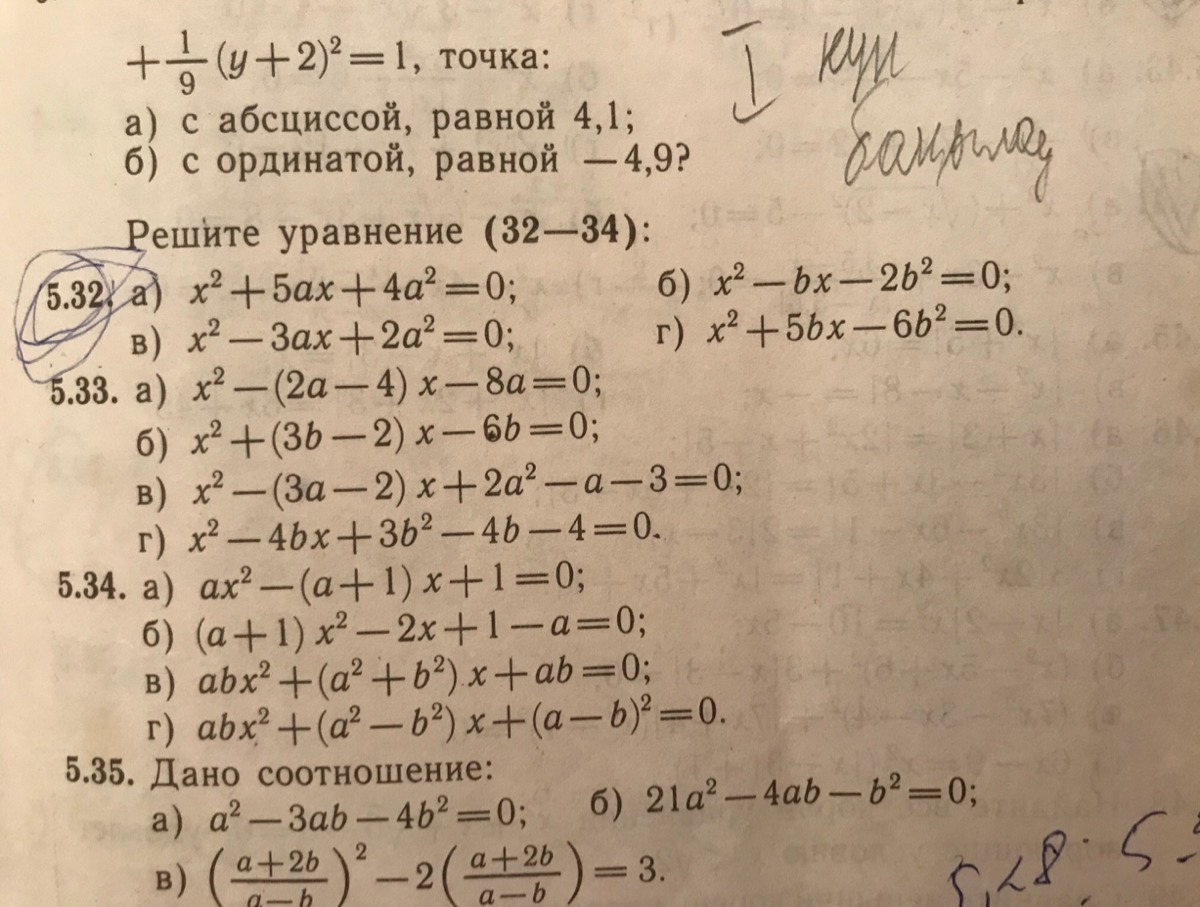 + 1/9 (y + 2)² = 1, точка:
а) с абсциссой, равной 4,1;
б) с ординатой, равной — 4,9?
I кун
Решите уравнение (32—34):
5.32. а) x² + 5ax + 4a² = 0; б) x² — bx — 2b² = 0;
в) x² — 3ax + 2a² = 0; г) x² + 5bx — 6b² = 0.
5.33. а) x² — (2a — 4) x — 8a = 0;
б) x² + (3b — 2) x — 6b = 0;
в) x² — (3a — 2) x + 2a² — a — 3 = 0;
г) x² — 4bx + 3b² — 4b — 4 = 0.
5.34. а) ax² — (a + 1) x + 1 = 0;
б) (a + 1) x² — 2x + 1 — a = 0;
в) abx² + (a² + b²) x + ab = 0;
г) abx² + (a² — b²) x + (a — b)² = 0.
5.35. Дано соотношение:
а) a² — 3ab — 4b² = 0; б) 21a² — 4ab — b² = 0;
в) ((a + 2b)/(a — b))² — 2((a + 2b)/(a — b)) = 3.
5,28;